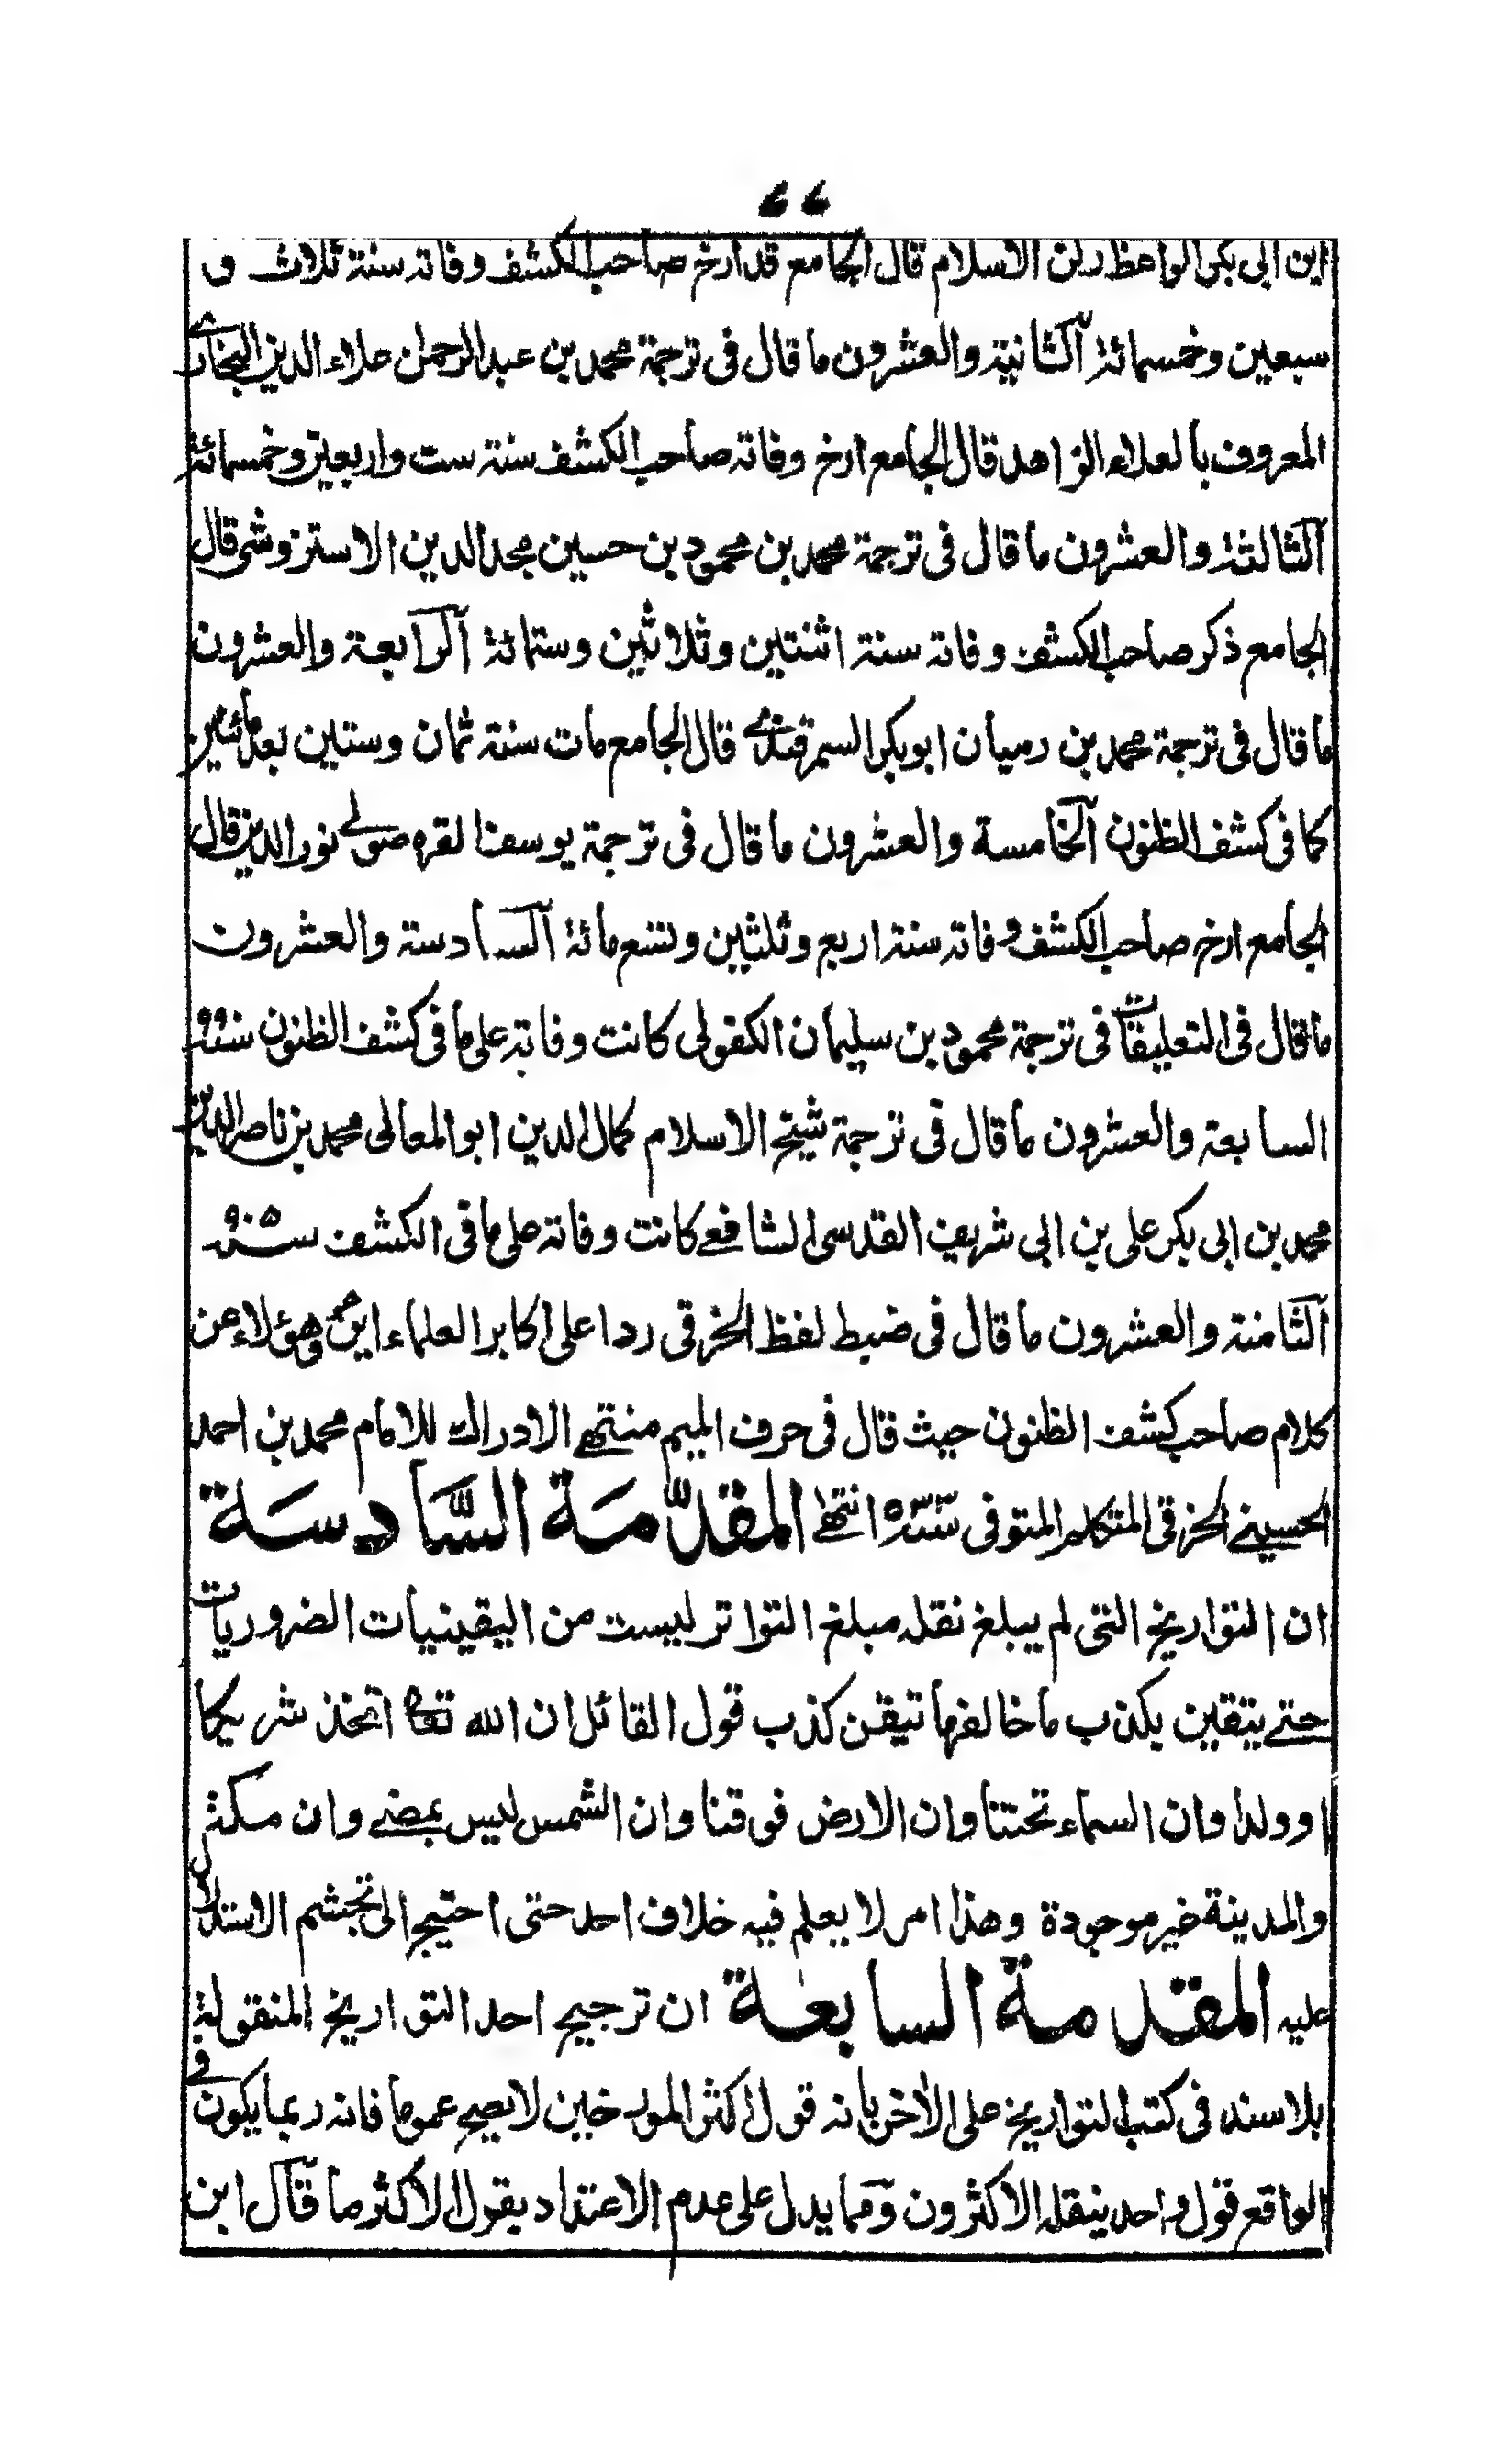 ٦٦
ابن ابى بكر الواعظ ركن الاسلام قال الجامع قد ارخ صاحب الكشف وفاته سنة ثلاث و
سبعين وخمسمائة الثانية والعشرون ما قال فى ترجمة محمد بن عبد الرحمن علاء الدين البخارى
المعروف بالعلاء الزاهد قال الجامع ارخ وفاته صاحب الكشف سنة ست واربعين وخمسمائة
الثالثة والعشرون ما قال فى ترجمة محمد بن محمود بن حسين مجد الدين الاستروشنى قال
الجامع ذكر صاحب الكشف وفاته سنة اثنتين وثلاثين وستمائة الرابعة والعشرون
ما قال فى ترجمة محمد بن رميان ابو بكر السمرقندى قال الجامع مات سنة ثمان وستين بعد مائتين
كما فى كشف الظنون الخامسة والعشرون ما قال فى ترجمة يوسف القره صولى نور الدين قال
الجامع ارخ صاحب الكشف وفاته سنة اربع وثلثين وتسعمائة السادسة والعشرون
ما قال فى التعليقات فى ترجمة محمود بن سليمان الكفوى كانت وفاته على ما فى كشف الظنون سنة ٩٩
السابعة والعشرون ما قال فى ترجمة شيخ الاسلام كمال الدين ابو المعالى محمد بن ناصر الدين
محمد بن ابى بكر على بن ابى شريف القدسى الشافعى كانت وفاته على ما فى الكشف سنة ٩٠٥
الثامنة والعشرون ما قال فى ضبط لفظ الخرقى ردا على اكابر العلماء اين هم وهؤلاء عن
كلام صاحب كشف الظنون حيث قال فى حرف الميم منتهى الادراك للامام محمد بن احمد
الحسينى الخرقى المتكلم المتوفى سنة ٥٣٣ انتهى المقدّمة السَّادسَة
ان التواريخ التى لم يبلغ نقله مبلغ التواتر ليست من اليقينيات الضروريات
حتى يتقين بكذب ما خالفها تيقن كذب قول القائل ان الله تعا اتخذ شريكا
او ولدا وان السماء تحتنا وان الارض فوقنا وان الشمس ليس بمضئ وان مكة
والمدينة غير موجودة وهذا امر لا يعلم فيه خلاف احد حتى احتيج الى تجشم الاستدلال
عليه المقدمة السابعة ان ترجيح احد التواريخ المنقولة
بلا سند فى كتب التواريخ على الآخر بانه قول اكثر المورخين لا يصح عموما فانه ربما يكون فى
الواقع قول واحد ينقله الاكثرون ومما يدل على عدم الاعتداد بقول الاكثر ما قال ابن